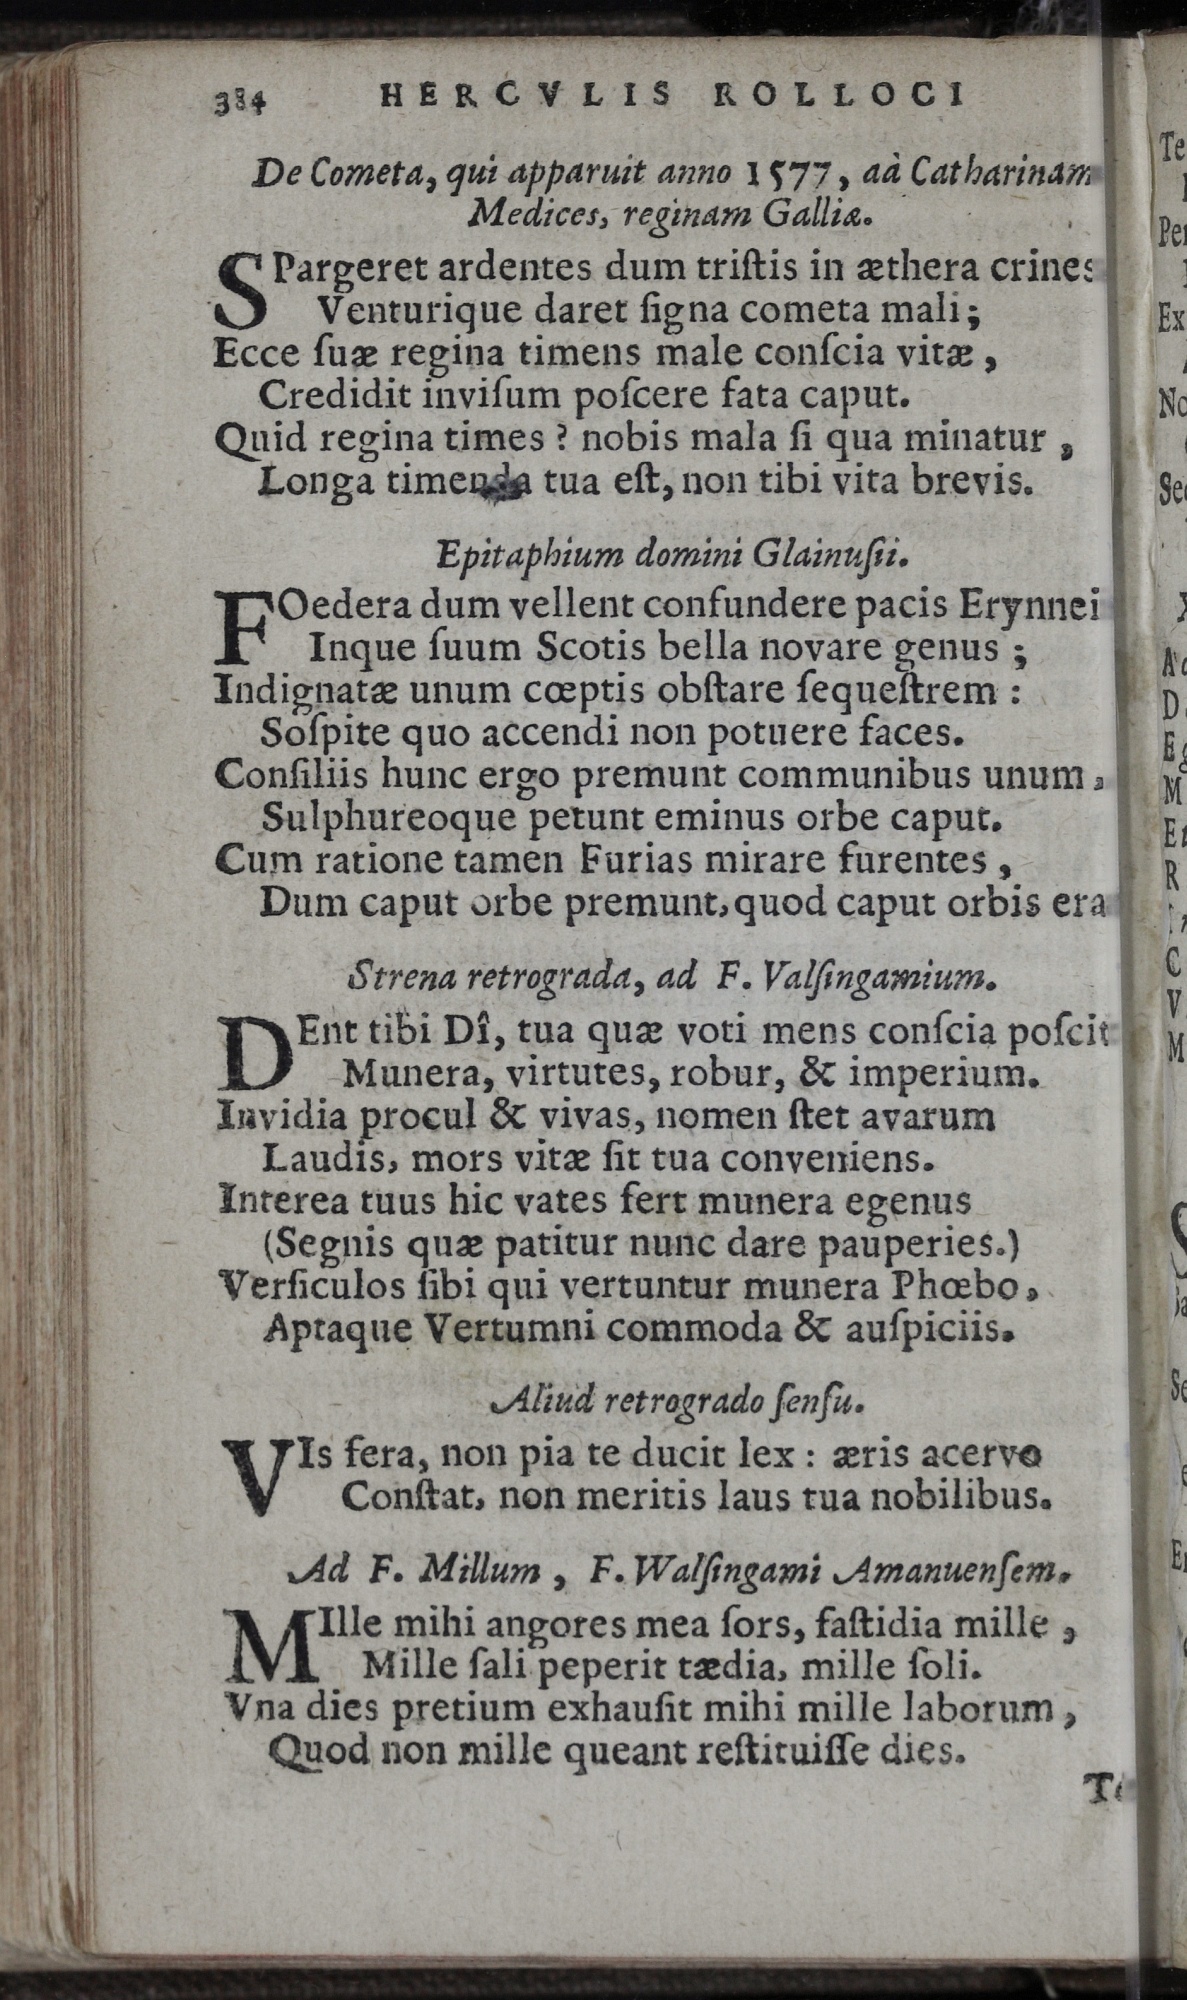 384 HERCVLIS ROLLOCI
De Cometa, qui apparuit anno 1577, ad Catharinam
Medices, reginam Galliæ.
SPargeret ardentes dum triſtis in æthera crines
Venturique daret ſigna cometa mali;
Ecce ſuæ regina timens male conſcia vitæ,
Credidit inviſum poſcere fata caput.
Quid regina times? nobis mala ſi qua minatur,
Longa timenda tua eſt, non tibi vita brevis.
Epitaphium domini Glainuſii.
FOedera dum vellent confundere pacis Erynnei
Inque ſuum Scotis bella novare genus;
Indignatæ unum cœptis obſtare ſequeſtrem:
Soſpite quo accendi non potuere faces.
Conſiliis hunc ergo premunt communibus unum,
Sulphureoque petunt eminus orbe caput.
Cum ratione tamen Furias mirare furentes,
Dum caput orbe premunt, quod caput orbis era
Strena retrograda, ad F. Valſingamium.
DEnt tibi Dî, tua quæ voti mens conſcia poſcit
Munera, virtutes, robur, & imperium.
Invidia procul & vivas, nomen ſtet avarum
Laudis, mors vitæ ſit tua conveniens.
Interea tuus hic vates fert munera egenus
(Segnis quæ patitur nunc dare pauperies.)
Verſiculos ſibi qui vertuntur munera Phœbo,
Aptaque Vertumni commoda & auſpiciis.
Aliud retrogrado ſenſu.
VIs fera, non pia te ducit lex: æris acervo
Conſtat, non meritis laus tua nobilibus.
Ad F. Millum, F. Walſingami Amanuenſem.
MIlle mihi angores mea ſors, faſtidia mille,
Mille ſali peperit tædia, mille ſoli.
Vna dies pretium exhauſit mihi mille laborum,
Quod non mille queant reſtituiſſe dies.